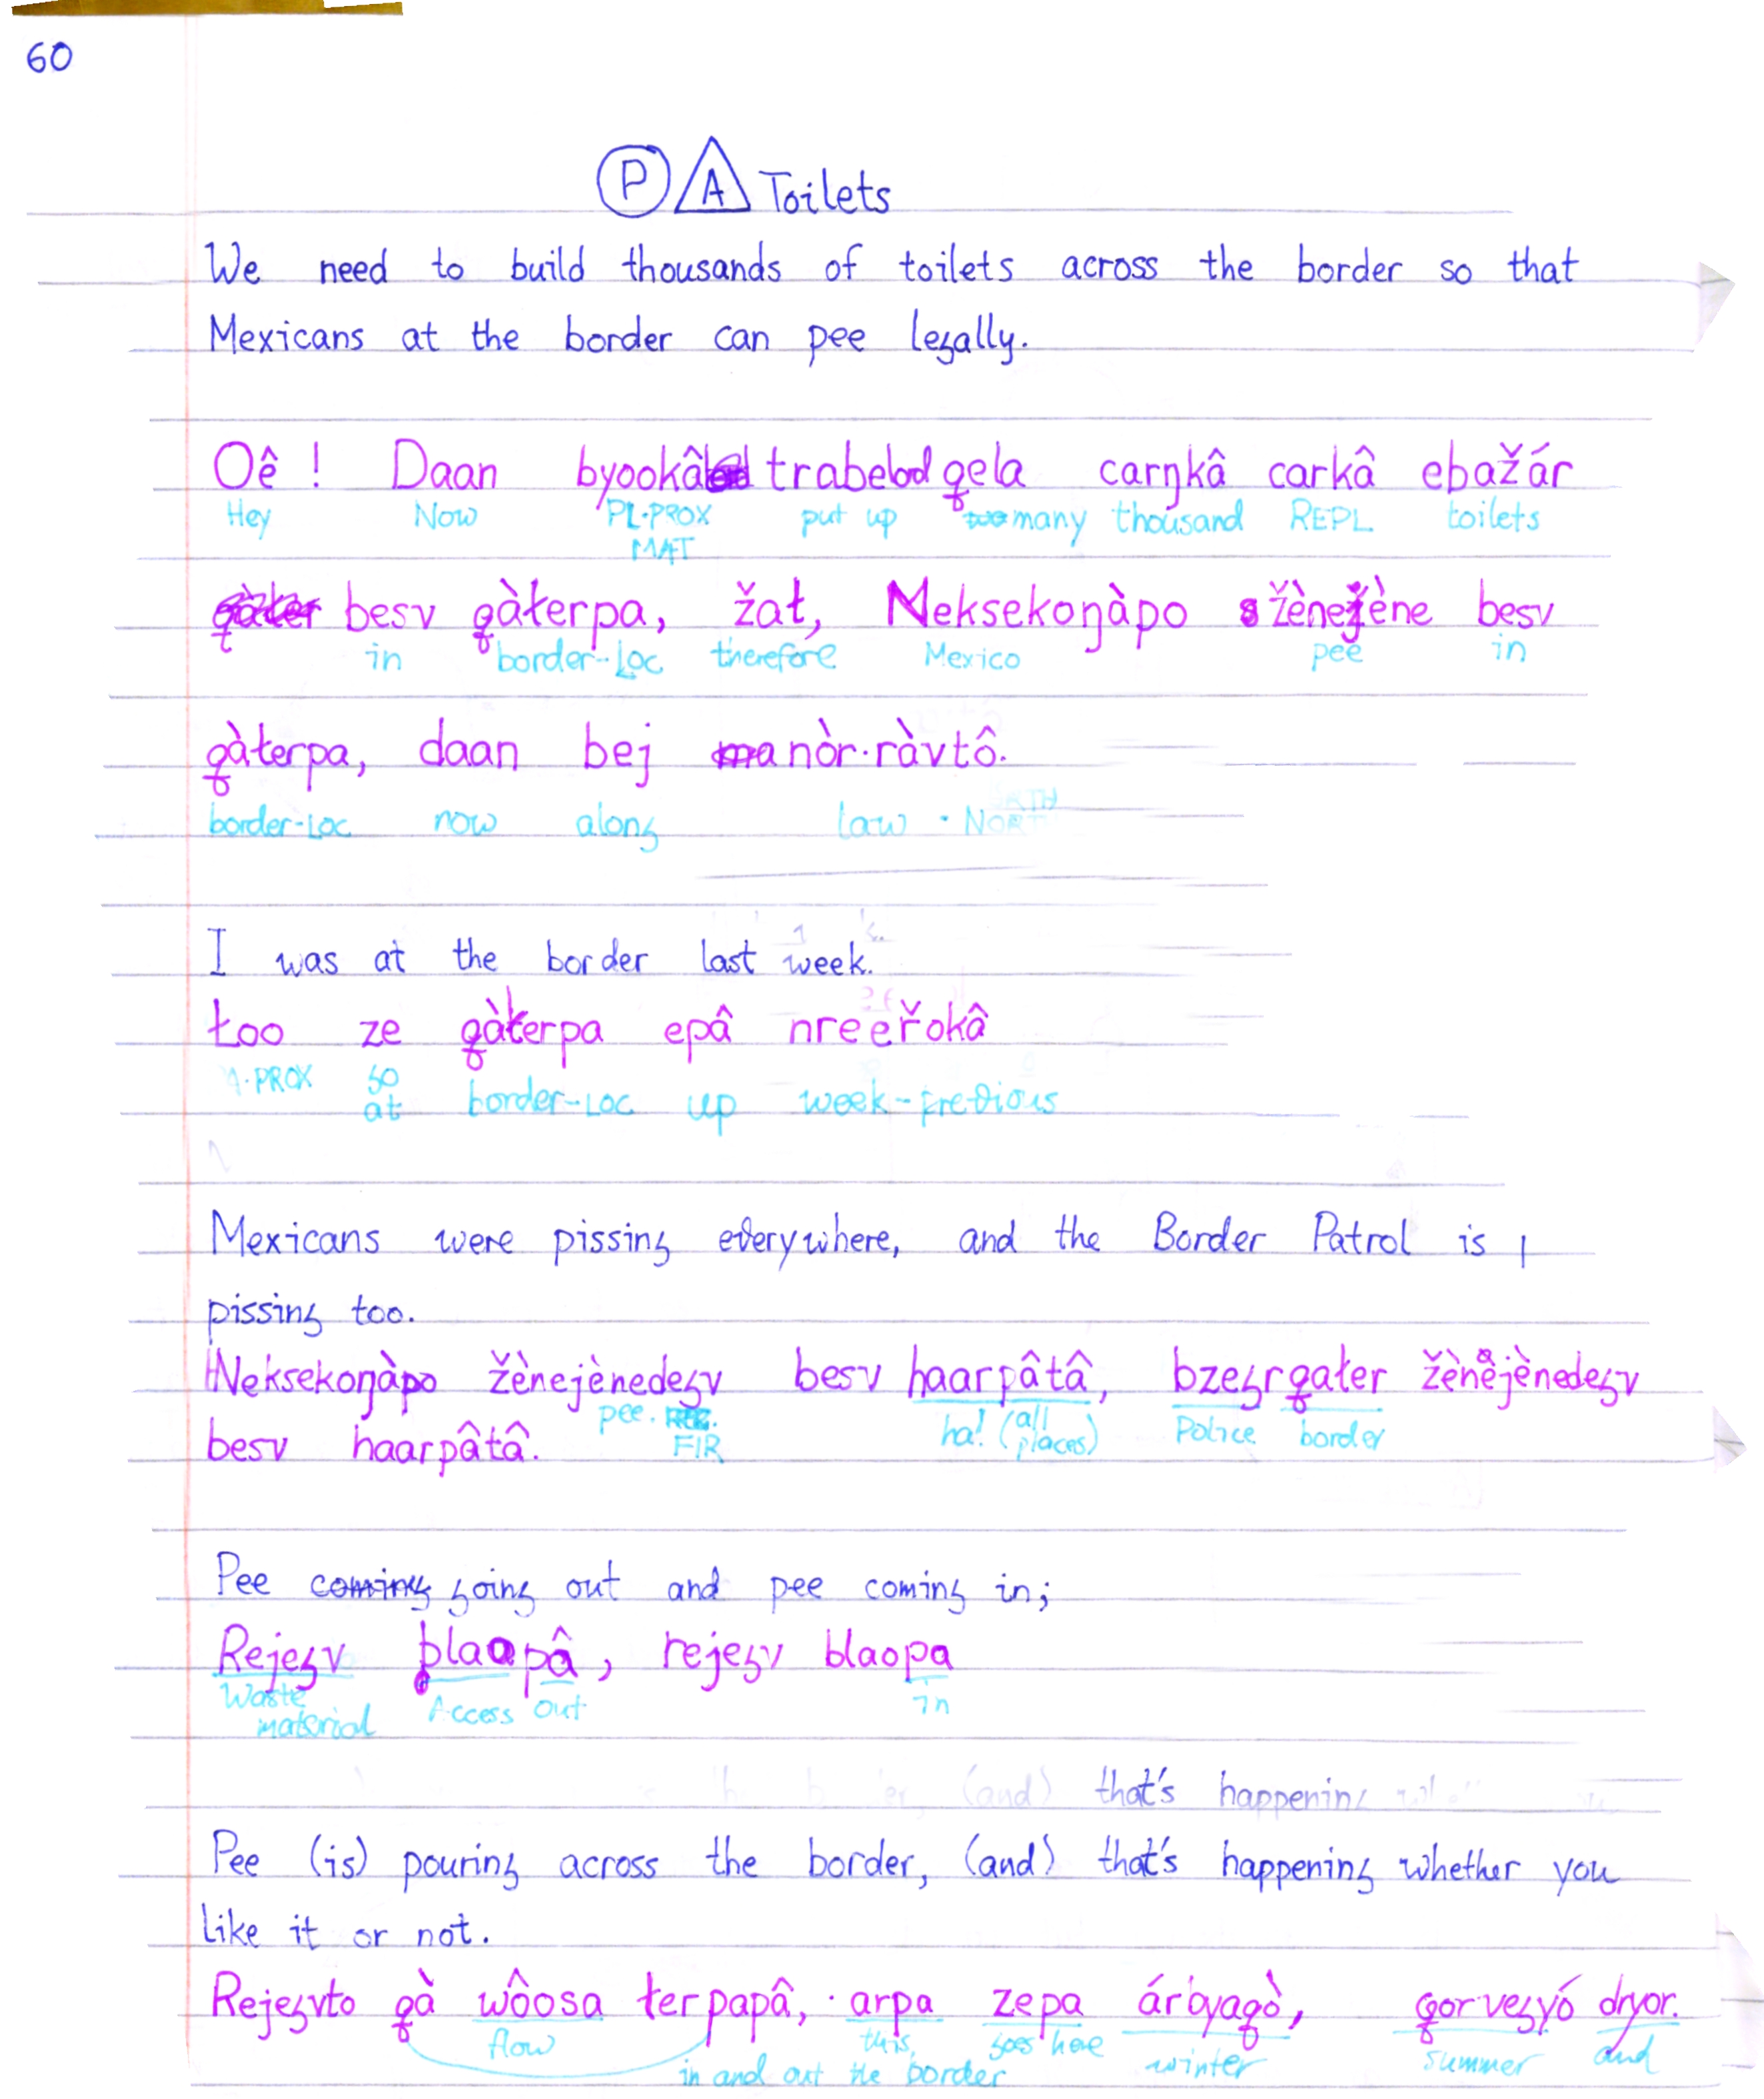 60
P A Toilets
We need to build thousands of toilets across the border so that
Mexicans at the border can pee legally.
Oê ! Daan byookâ trabelod qela carŋkâ carkâ ebažár
Hey Now PL·PROX put up many thousand REPL toilets
MAT
besv qàterpa, žat, Neksekoŋàpo žènejène besv
in border-Loc therefore Mexico pee in
qàŧerpa, daan bej nòr·ràvtô.
border-Loc now along law · NORTH
I was at the border last week.
Ŧoo ze qàŧerpa epâ nreeřokâ
A·PROX so border-LOC up week-previous
at
Mexicans were pissing everywhere, and the Border Patrol is
pissing too.
Neksekoŋàpo žènejènedegv besv haarpâtâ, bzegrqaŧer žènejènedegv
pee. FIR ha! (all places) Police border
besv haarpâtâ.
Pee going out and pee coming in;
Rejegv blaopâ, rejegv blaopa
Waste material Access out in
(and) that's happening
Pee (is) pouring across the border, (and) that's happening whether you
like it or not.
Rejegvto qà wôosa ŧerpapâ, arpa zepa áróyagò, qorvegyó dryor.
flow this, goes here winter summer and
in and out the border